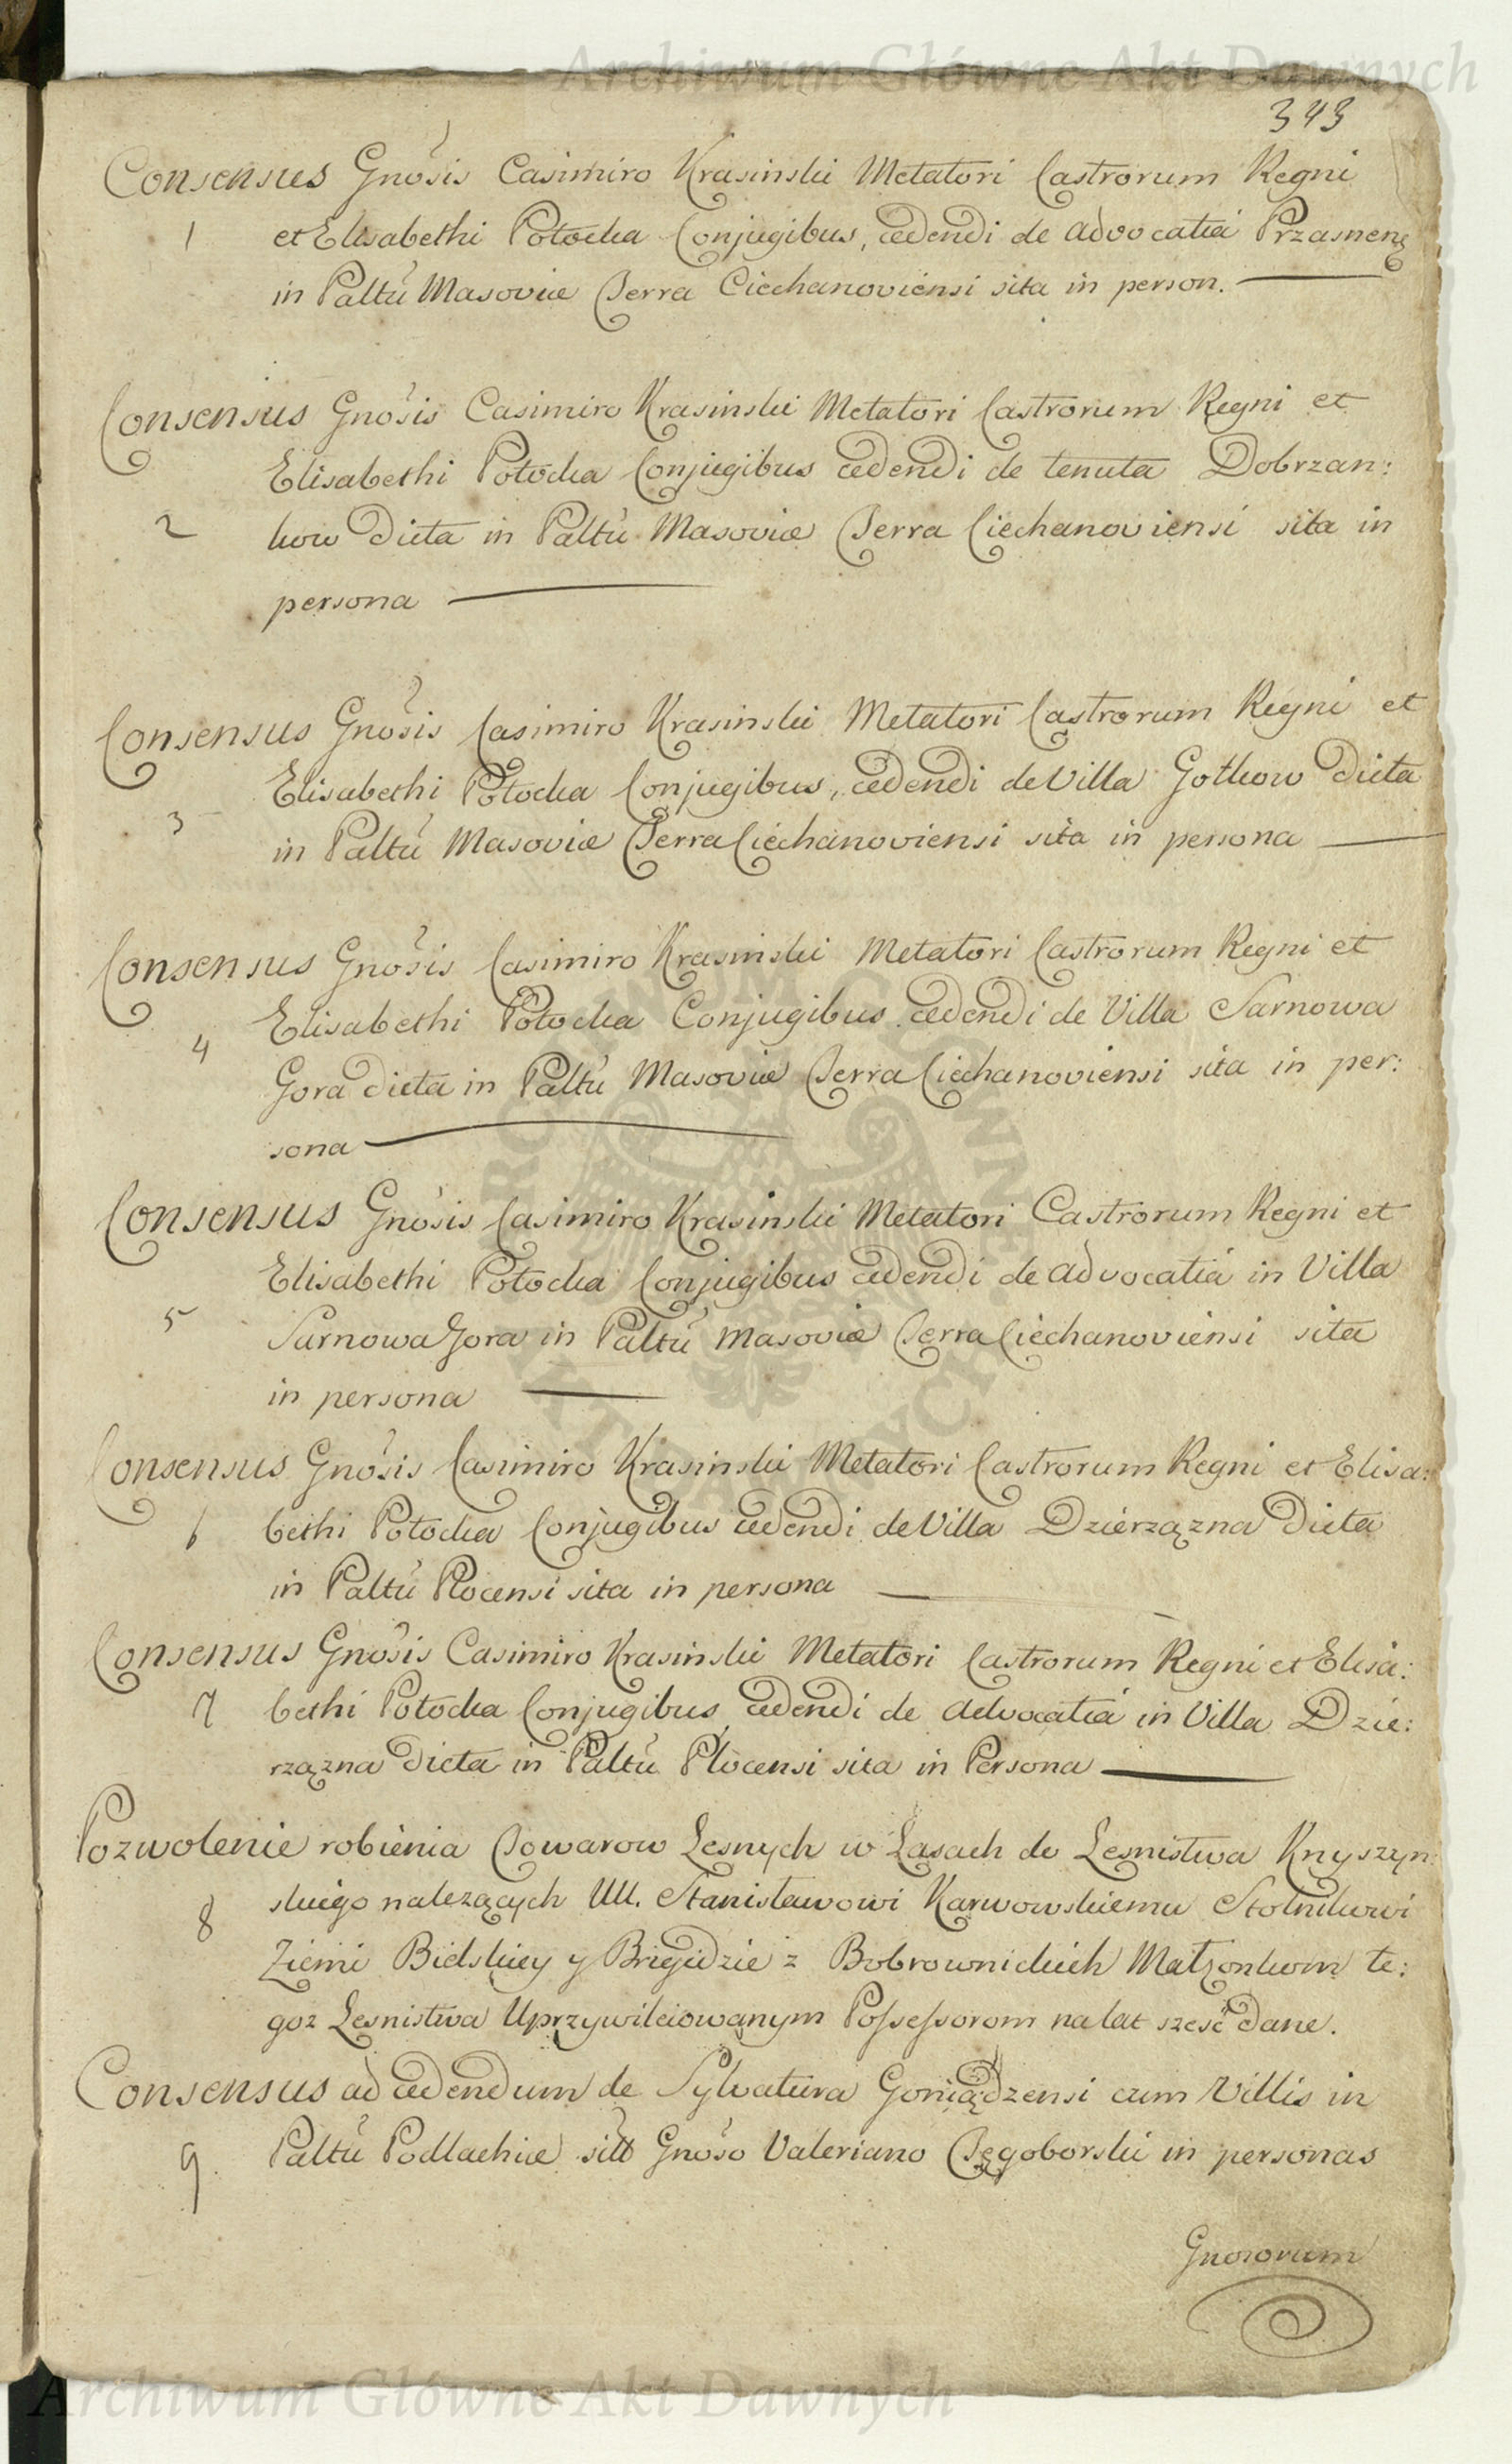 Archiwum Główne Akt Dawnych
343
Consensus Gnosis Casimiro Krasinski Metatori Castrorum Regni
1 et Elisabethi Potocka Conjugibus, cedendi de advocatia Przasnene
in Paltu Masoviæ Terra Ciechanoviensi sita in person.
Consensus Gnosis Casimiro Krasinski Metatori Castrorum Regni et
Elisabethi Potocka Conjugibus cedendi de tenuta Dobrzan:
2 kow dicta in Paltu Masoviæ Terra Ciechanoviensi sita in
persona
Consensus Gnosis Casimiro Krasinski Metatori Castrorum Regni et
Elisabethi Potocka Conjugibus, cedendi de Villa Gotkow dicta
3 in Paltu Masoviæ Terra Ciechanoviensi sita in persona
Consensus Gnosis Casimiro Krasinski Metatori Castrorum Regni et
4 Elisabethi Potocka Conjugibus cedendi de Villa Sarnowa
Gora dicta in Paltu Masoviæ Terra Ciechanoviensi sita in per:
sona
Consensus Gnosis Casimiro Krasinski Metatori Castrorum Regni et
Elisabethi Potocka Conjugibus cedendi de advocatia in Villa
5 Sarnowa Gora in Paltu Masoviæ Terra Ciechanoviensi sita
in persona
Consensus Gnosis Casimiro Krasinski Metatori Castrorum Regni et Elisa:
6 bethi Potocka Conjugibus cedendi de Villa Dzierzązna dicta
in Paltu Plocensi sita in persona
Consensus Gnosis Casimiro Krasinski Metatori Castrorum Regni et Elisa:
7 bethi Potocka Conjugibus cedendi de Advocatia in Villa Dzie:
rzązna dicta in Paltu Plocensi sita in Persona
Pozwolenie robienia Towarow Lesnych w Lasach do Lesnistwa Knyszyn:
8 skiego nalezących Ull. Stanisławowi Karwowskiemu Stolnikowi
Ziemi Bielskiey y Brigidzie z Bobrownickich Małzonkom te:
goz Lesnistwa Uprzywileiowanym Possessorom na lat szesc dane.
Consensus ad cedendum de Sylvatura Goniądzensi cum Villis in
9. Paltu Podlachiæ sitt Gnoso Valeriano Tęgoborski in personas
Gnosorum
ARCHIWUM GŁÓWNE AKT DAWNYCH
Archiwum Główne Akt Dawnych